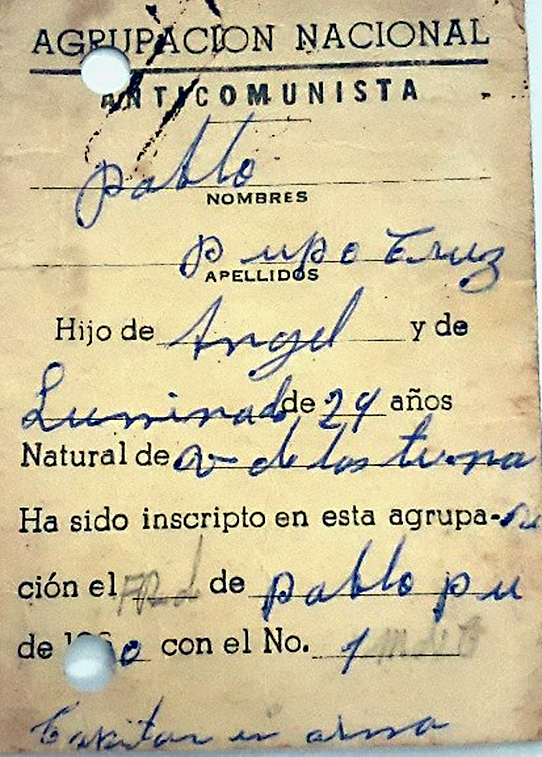 AGRUPACION NACIONAL
ANTICOMUNISTA
pablo
NOMBRES
pupo Cruz
APELLIDOS
Hijo de Angel y de
Luminada de 24 años
Natural de V de las tuna
Ha sido inscripto en esta agrupa-
ción el de pablo pu
de 19 0 con el No. 1
en arma